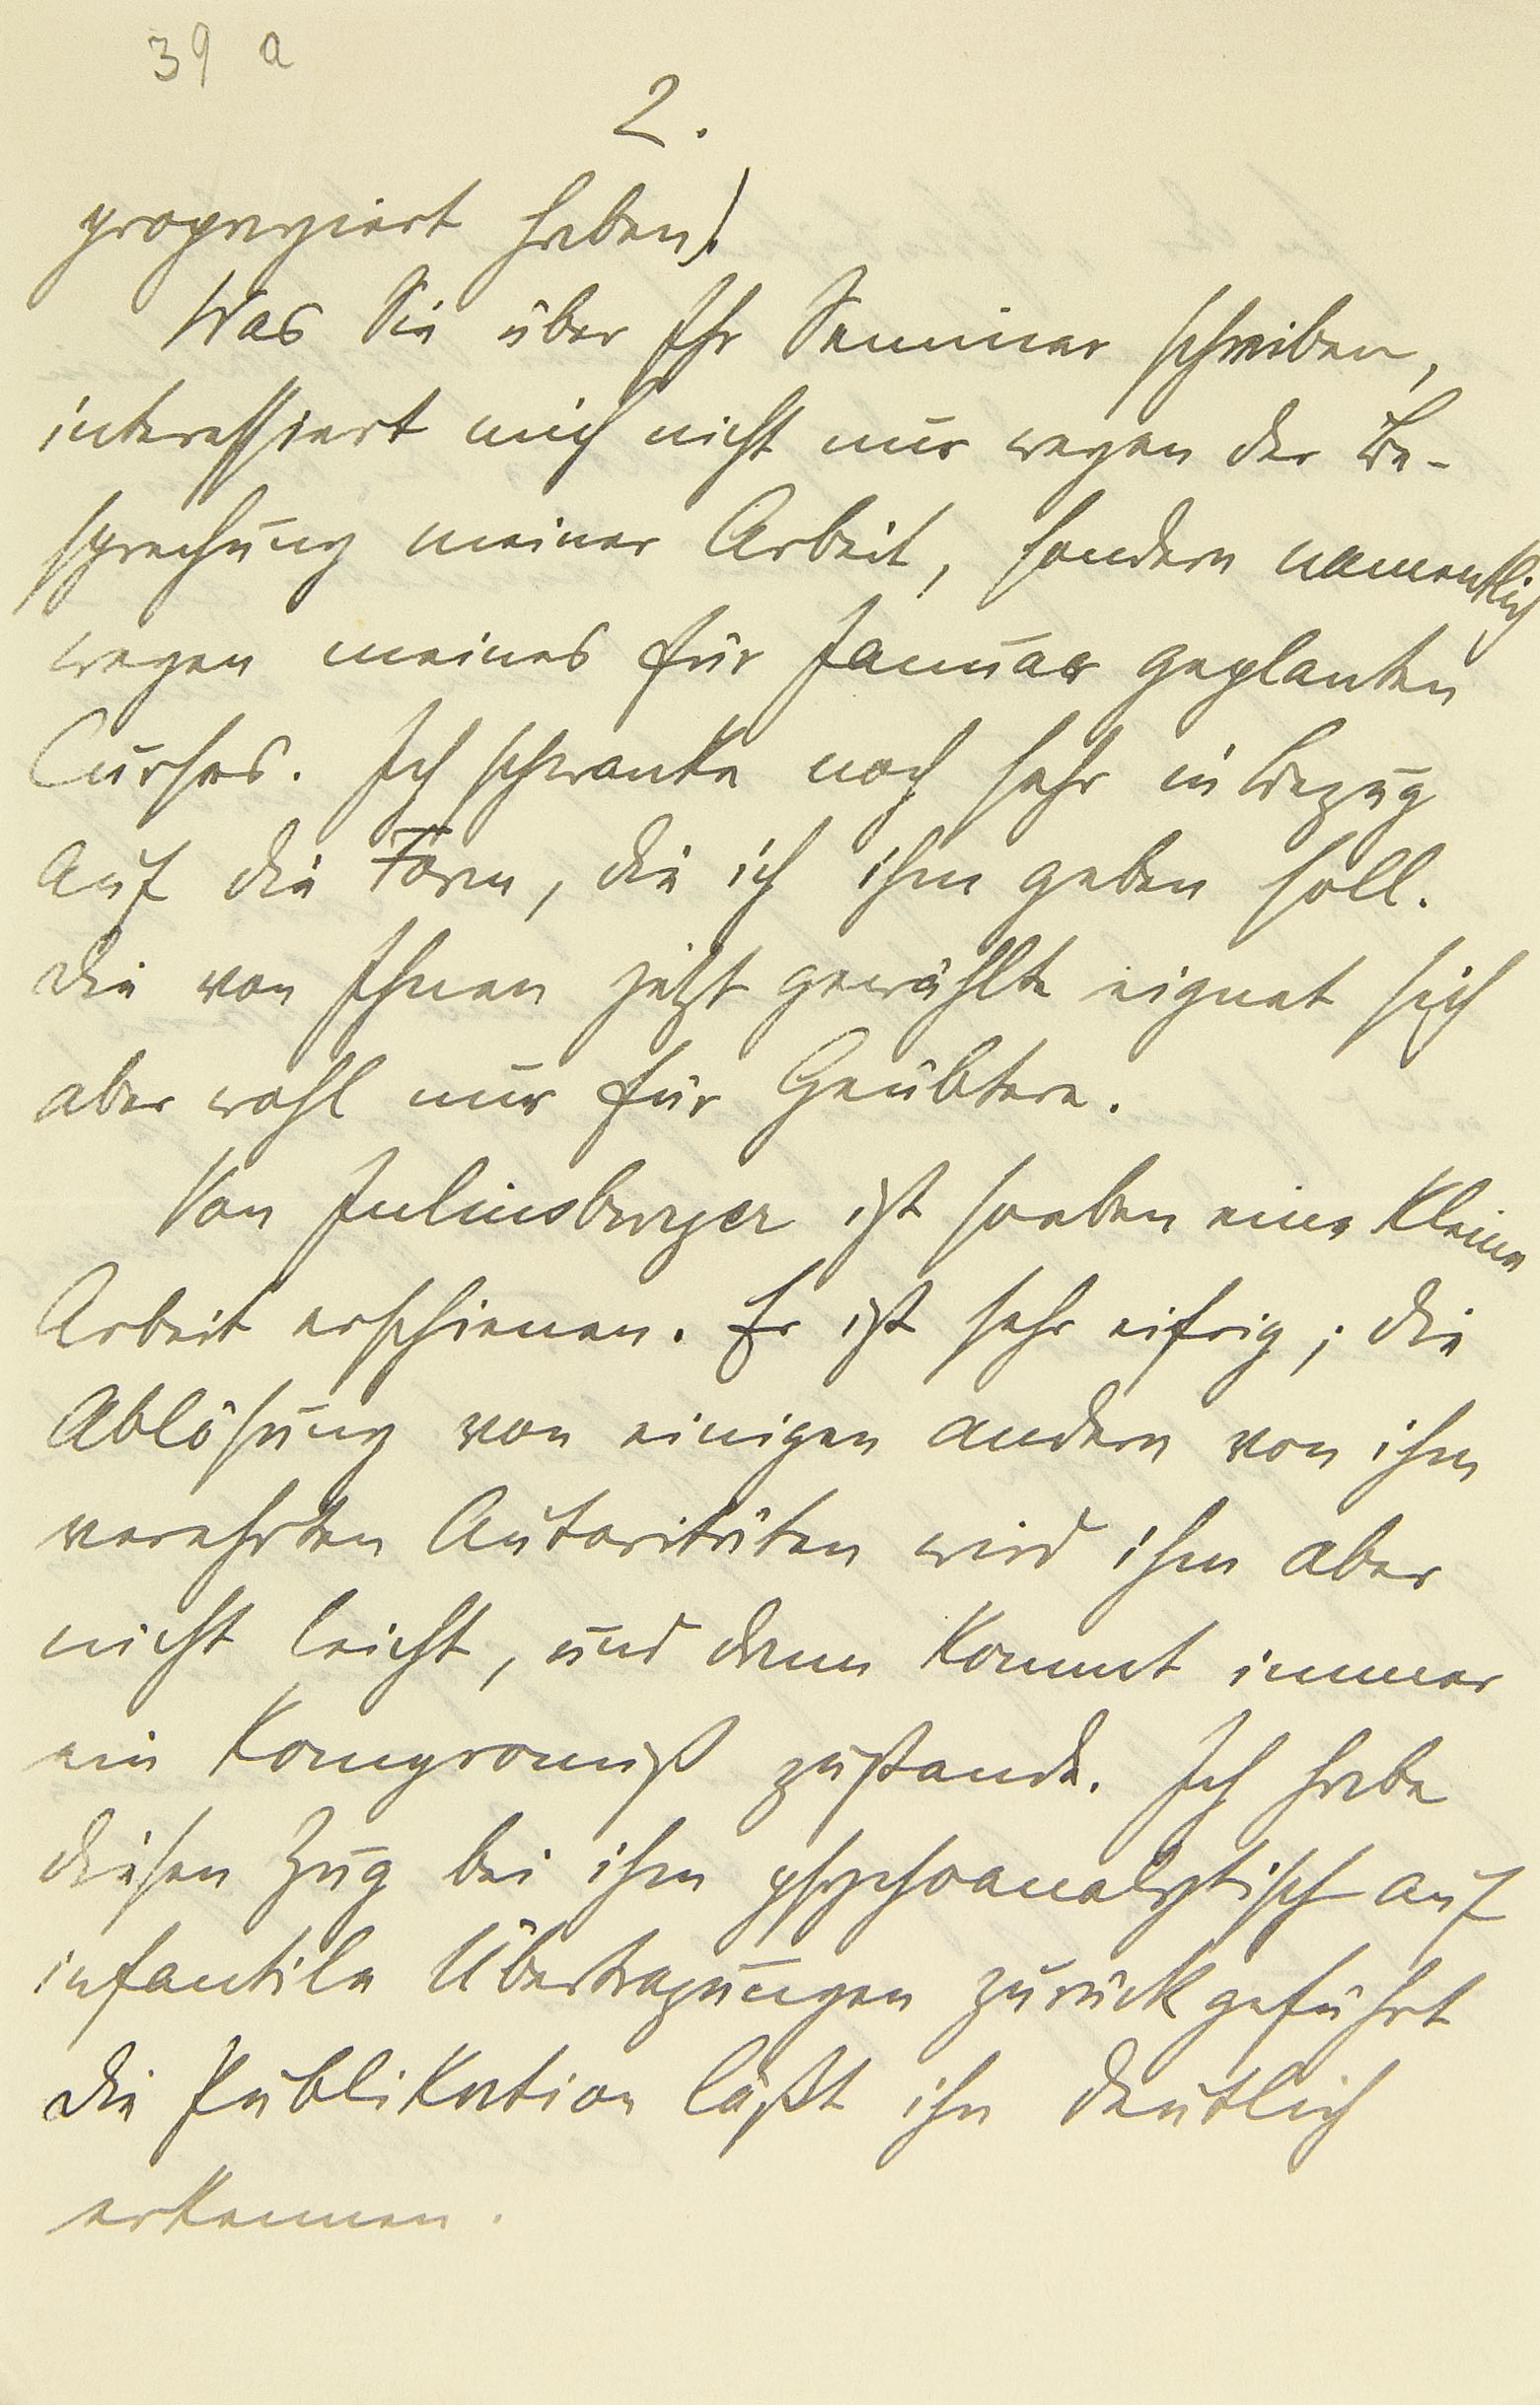 39 a
2.
prophezeiert haben)!
Was Sie über Ihr Seminar schreiben,
interessiert mich nicht nur wegen der Be-
sprechung meiner Arbeit, sondern namentlich
wegen meines für Januar geplanten
Curses. Ich schwanke noch sehr in Bezug
auf die Form, die ich ihm geben soll.
Die von Ihnen jetzt gewählte eignet sich
aber wohl nur für Geübtere.
Von Juliusburger ist soeben eine kleine
Arbeit erschienen. Er ist sehr eifrig; die
Ablösung von einigen andern von ihm
verehrten Autoritäten wird ihm aber
nicht leicht, und dann kommt immer
ein Kompromiß zustande. Ich habe
diesen Zug bei ihm psychoanalytisch auf
infantile Übertragungen zurückgeführt
Die Publikation läßt ihn deutlich
erkennen.